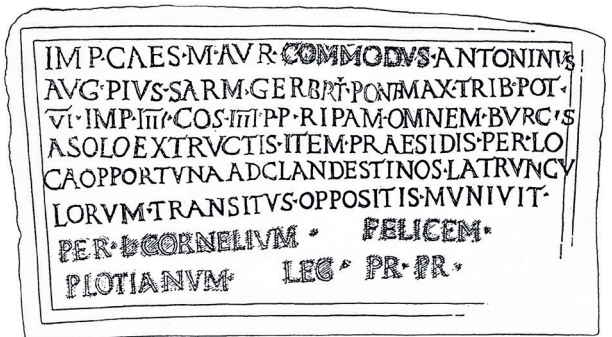 IMP·CAES·M·AVR·COMMODVS·ANTONINVS
AVG·PIVS·SARM·GER·BRIT·PONT·MAX·TRIB·POT·
VI·IMP·IIII·COS·IIII·P·P·RIPAM·OMNEM·BVRGIS
ASOLO EXTRVCTIS·ITEM·PRAESIDIS·PER·LO
CAOPPORTVNAADCLANDESTINOS·LATRVNCV
LORVM·TRANSITVS·OPPOSITIS·MVNIVIT·
PER·L·CORNELIVM· FELICEM·
PLOTIANVM· LEG· PR·PR·